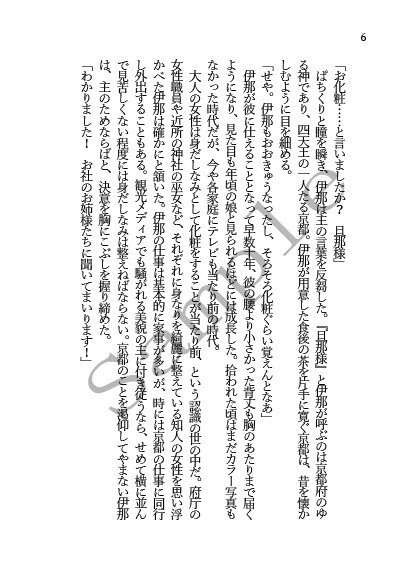 6
「お化粧……と言いましたか？　旦那様」
　ぱちくりと瞳を瞬き、伊那は主の言葉を反芻した。『旦那様』と伊那が呼ぶのは京都府のゆ
る神であり、四天王の一人たる京都。伊那が用意した食後の茶を片手に寛ぐ京都は、昔を懐か
しむように目を細める。
「せや。伊那もおおきゅうなったし、そろそろ化粧ぐらい覚えんとなあ」
　伊那が彼に仕えることとなって早数十年、彼の腰より小さかった背丈も胸のあたりまで届く
ようになり、見た目も年頃の娘と見られるほどには成長した。拾われた頃はまだカラー写真も
なかった時代だが、今や各家庭にテレビも当たり前の時代。
　大人の女性は身だしなみとして化粧をすることが当たり前、という認識の世の中だ。府庁の
女性職員や近所の神社の巫女など、それぞれに身なりを綺麗に整えている知人の女性を思い浮
かべた伊那は確かにと頷いた。伊那の仕事は基本的に家事が多いが、時には京都の仕事に同行
し外出することもある。観光メディアでも騒がれる美貌の主に付き従うなら、せめて横に並ん
で見苦しくない程度には身だしなみは整えねばならない。京都のことを渇仰してやまない伊那
は、主のためならばと、決意を胸にこぶしを握り締めた。
「わかりました！　お社のお姉様たちに聞いてまいります！」
Sample